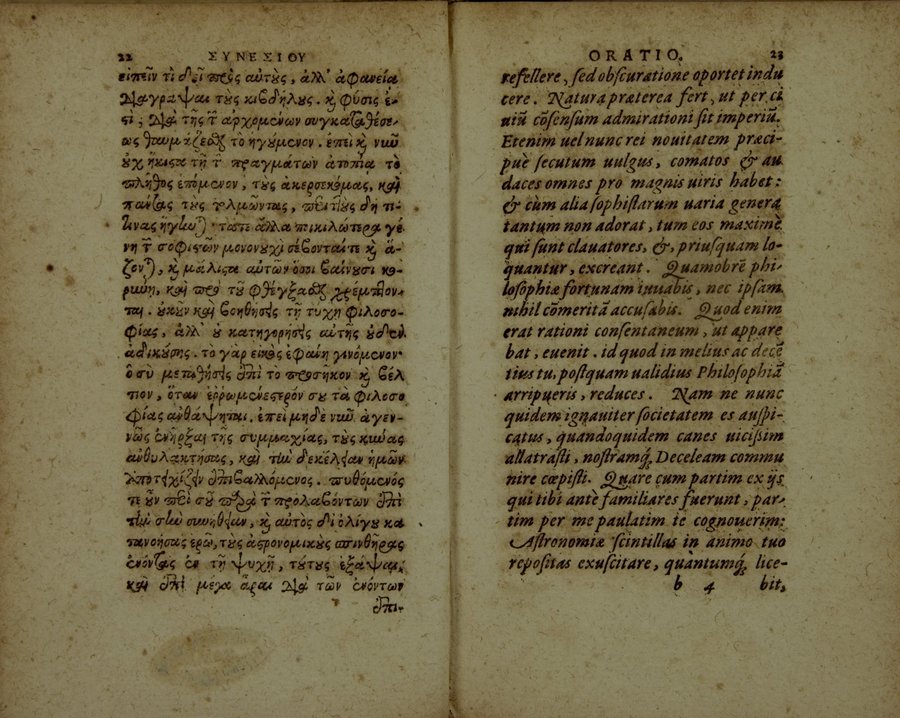 22 ΣΥΝΕΣΙΟΥ
εἰπεῖν τὶ δεῖ πρὸς αὐτοὺς, ἀλλ' ἀφανείᾳ
διαγράψαι τοὺς κιβδήλους. καὶ φύσις ἐ-
ςὶ, διὰ τῆς τῶν ἀρχομένων συγκαταθέσε-
ως θαυμάζεσθαι τὸ ἡγούμενον. ἐπεὶ καὶ νῦν
οὐχ ἥκιςα τῇ τῶν πραγμάτων ἀτοπίᾳ τὸ
πλῆθος ἑπόμενον, τοὺς ἀκερσεκόμας, καὶ
πάντας τοὺς τολμῶντας, περιττούς δή τι-
νας ἡγοῦνται. τά τε ἄλλα ποικιλώτερα γέ
νη τῶν σοφιςῶν μονονουχὶ σέβονταί τε καὶ ἅ-
ζονται, καὶ μάλιςα αὐτῶν ὅσοι βαίνουσι κο-
ρύνῃ, καὶ πρὸ τοῦ φθέγξασθαι χρέμπτον-
ται. οὐκοῦν καὶ βοηθήσεις τῇ τύχῃ φιλοσο-
φίας, ἀλλ' οὐ κατηγορήσεις αὐτῆς οὐδὲν
ἀδικούσης. τὸ γὰρ εἰκὸς ἐφαίνη γινόμενον·
ὃ σὺ μεταθήσεις ἐπὶ τὸ προσῆκον καὶ βέλ
τιον, ὅταν ἐῤῥωμενέςερόν σου τὰ φιλοσο
φίας ἀνθάψηται. ἐπεὶ μηδὲ νῦν ἀγεν-
νῶς ἐνῆρξαι τῆς συμμαχίας, τοὺς κύνας
ἀνθυλακτήσας, καὶ τὴν δεκέλειαν ἡμῶν
ἀποτειχίζειν ἐπιβαλλόμενος. πυθόμενός
τε οὖν περὶ σοῦ παρὰ τῶν προλαβόντων ἐπὶ
τὴν σὴν συνήθειαν, καὶ αὐτὸς δι' ὀλίγου κα
τανοήσας ἐρῶ, τοὺς ἀςρονομικοὺς σπινθῆρας
ἐνόντας ἐν τῇ ψυχῇ, τούτους ἐξάψαι,
καὶ ἐπὶ μέγα ἆραι διὰ τῶν ἐνόντων
ἐπι-
ORATIO. 23
refellere, sed obscuratione oportet indu
cere. Natura præterea fert, ut per ci
uiũ cõsensum admirationi sit imperiũ.
Etenim uel nunc rei nouitatem præci-
puè secutum uulgus, comatos & au
daces omnes pro magnis uiris habet:
& cùm alia sophistarum uaria genera
tantum non adorat, tum eos maximè
qui sunt clauatores, &, priusquam lo-
quantur, excreant. Quamobrẽ phi-
losophiæ fortunam iuuabis, nec ipsam
nihil cõmeritã accusabis. Quod enim
erat rationi consentaneum, ut appare
bat, euenit. id quod in melius ac decẽ
tius tu, postquam ualidius Philosophiã
arripueris, reduces. Nam ne nunc
quidem ignauiter societatem es auspi-
catus, quandoquidem canes uicissim
allatrasti, nostramq́; Deceleam commu
nire cœpisti. Quare cum partim ex ijs
qui tibi antè familiares fuerunt, par-
tim per me paulatim te cognouerim:
Astronomiæ scintillas in animo tuo
repositas exuscitare, quàntumq́; lice-
b 4 bit,